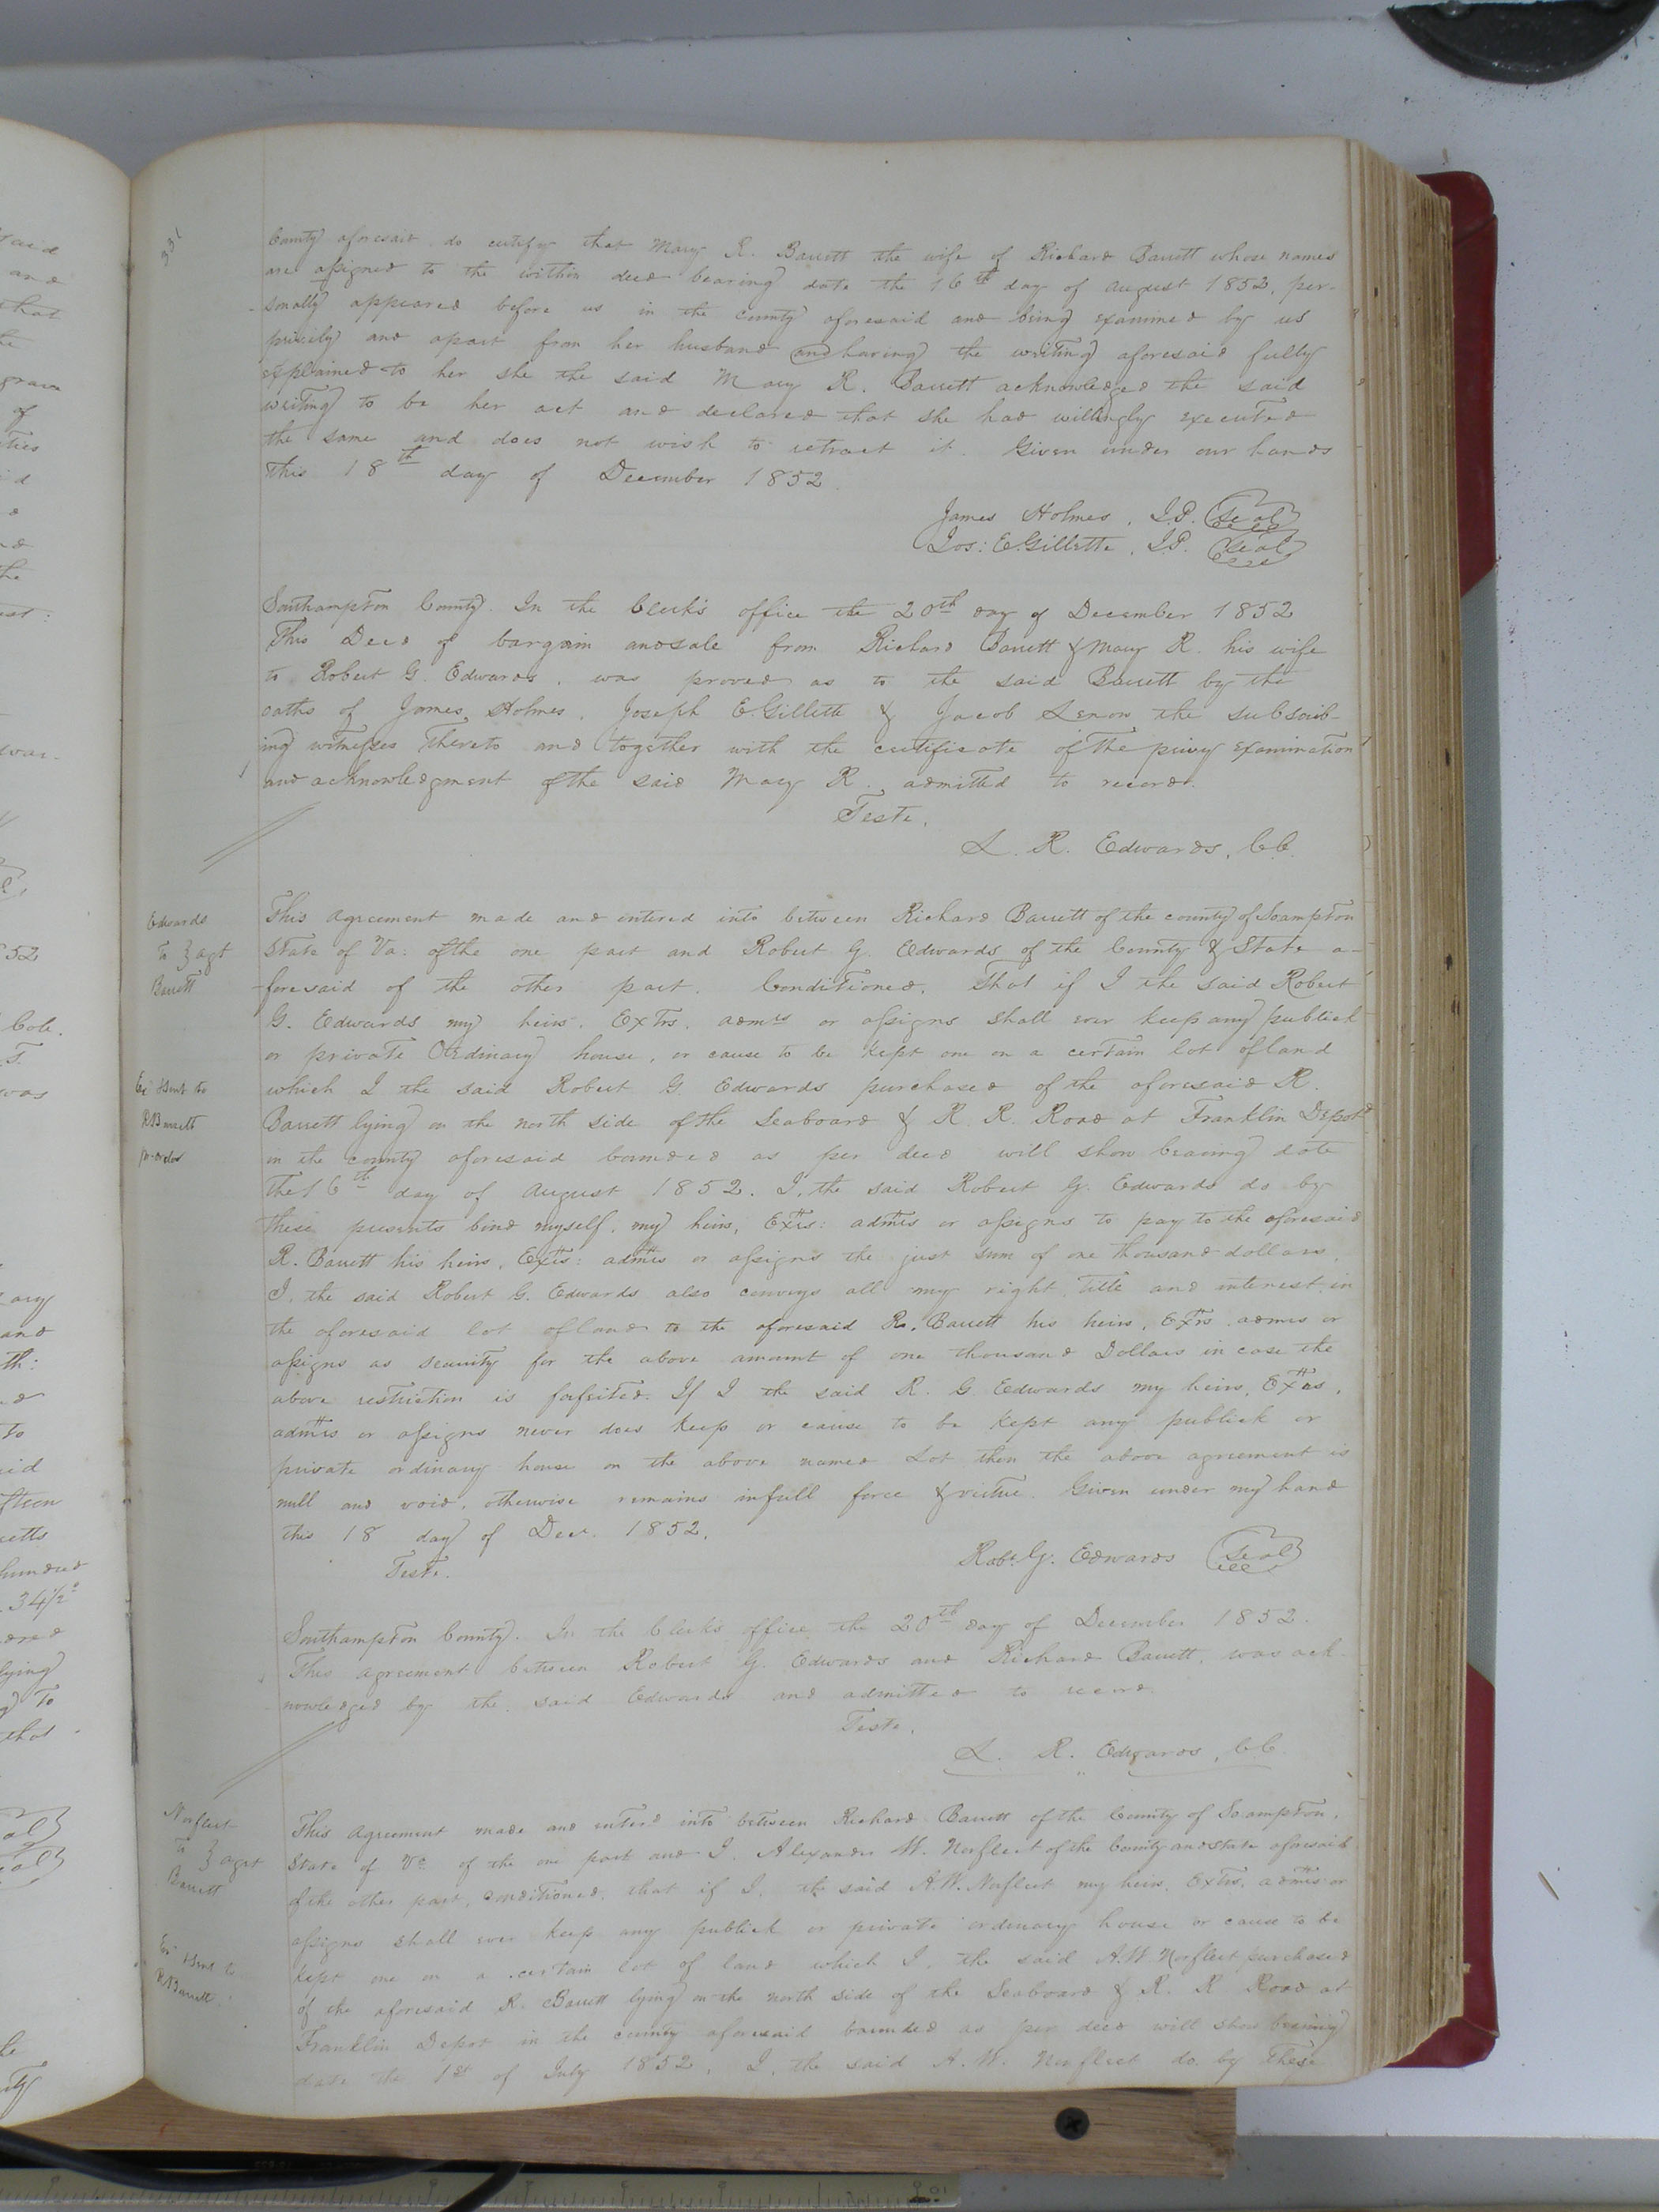 331
County aforesaid do certify that Mary R. Barrett the wife of Richard Barrett whose names
are assigned to the within deed bearing date the 16th day of August 1852, per-
sonally appeared before us in the County aforesaid and being examined by us
privily and apart from her husband and having the writing aforesaid fully
explained to her she the said Mary R. Barrett acknowledged the said
writing to be her act and declared that she had willingly executed
the same and does not wish to retract it. Given under our hands
this 18th day of December 1852.
James Holmes, J.P. (Seal)
Jos: E. Gillette, J.P. (Seal)
Southampton County. In the Clerk's office the 20th day of December 1852
This Deed of bargain and sale from Richard Barrett & Mary R. his wife
to Robert G. Edwards, was proved as to the said Barrett by the
oaths of James Holmes, Joseph E. Gillette & Jacob Lenow the subscrib-
ing witnesses thereto and together with the certificate of the privy examination
and acknowledgment of the said Mary R. admitted to record.
Teste,
L. R. Edwards, C.C.
Edwards
To } agt
Barrett
This Agreement made and entered into between Richard Barrett of the county of Soampton
State of Va: of the one part and Robert G. Edwards of the County & State a-
foresaid of the other part. Conditioned. That if I the said Robert
G. Edwards my heirs, Extrs, admrs or assigns shall ever keep any publick
or private Ordinary house, or cause to be kept one on a certain lot of land
Ex & sent to
R Barrett
which I the said Robert G. Edwards purchased of the aforesaid R.
Barrett lying on the north side of the Seaboard & R. R. Road at Franklin Depot
in the county aforesaid bounded as per deed will show bearing date
the 16th day of August 1852. I, the said Robert G. Edwards do by
these presents bind myself, my heirs, Extrs: admtrs or assigns to pay to the aforesaid
R. Barrett his heirs, Extrs: admtrs or assigns the just sum of one thousand dollars.
I, the said Robert G. Edwards also conveys all my right, title and interest in
the aforesaid lot of land to the aforesaid R. Barrett his heirs, Extrs, admrs or
assigns as security for the above amount of one thousand Dollars in case the
above restriction is forfeited. If I the said R. G. Edwards my heirs, Extrs,
admtrs or assigns never does keep or cause to be kept any publick or
private ordinary house on the above named Lot then the above agreement is
null and void, otherwise remains in full force & virtue. Given under my hand
this 18 day of Decr. 1852.
Teste.
Robt. G. Edwards (Seal)
Southampton County. In the Clerk's office the 20th day of December 1852.
This agreement between Robert G. Edwards and Richard Barrett, was ack-
nowledged by the said Edwards and admitted to record
Teste,
L. R. Edwards, C.C.
Norfleet
To } agrt
Barrett
This Agreement made and enterd into between Richard Barrett of the County of Soampton,
State of Va of the one part and I, Alexander W. Norfleet of the County and state aforesaid
of the other part, conditioned, that if I, the said A. W. Norfleet my heirs, Extrs, admtrs or
assigns shall ever keep any publick or private ordinary house or cause to be
Ex & sent to
R Barrett
kept one on a certain lot of land which I, the said A. W. Norfleet purchased
of the aforesaid R. Barrett lying on the north side of the Seaboard & R. R Road at
Franklin Depot in the county aforesaid bounded as per deed will show bearing
date the 1st of July 1852, I, the said A. W. Norfleet do by these